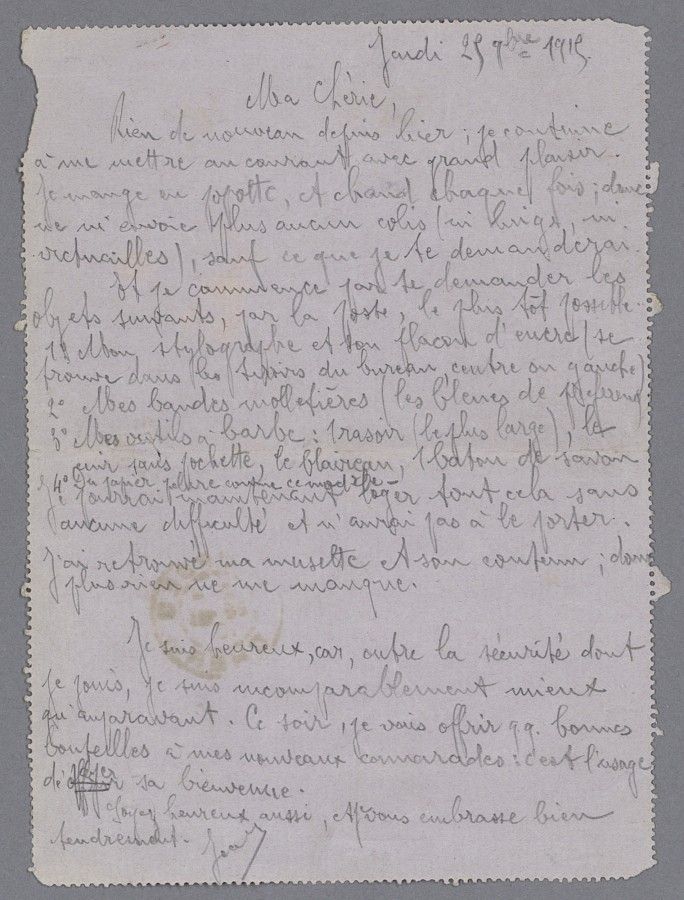 Jeudi 25 9bre 1915.
Ma Chérie,
Rien de nouveau depuis hier ; je continue
à me mettre au courant avec grand plaisir.
Je mange en popotte, et chaud chaque fois ; donc
ne m'envoie plus aucun colis (ni linge, ni
victuailles), sauf ce que je te demanderai.
Et je commence par te demander les
objets suivants, par la poste, le plus tôt possible.
1° Mon stylographe et son flacon d'encre (se
trouve dans les tiroirs du bureau, centre ou gauche)
2° Mes bandes molletières (les bleues de préférence)
3° Mes outils à barbe : 1 rasoir (le plus large), le
cuir sans pochette, le blaireau, 1 bâton de savon
4° Du papier pelure comme ce modèle
Je pourrai maintenant loger tout cela sans
aucune difficulté et n'aurai pas à le porter.
J'ai retrouvé ma musette et son contenu ; donc
plus rien ne me manque.
Je suis heureux, car, outre la sécurité dont
je jouis, je suis incomparablement mieux
qu'auparavant. Ce soir, je vais offrir qq. bonnes
bouteilles à mes nouveaux camarades : c'est l'usage
de payer sa bienvenue.
Soyez heureux aussi, et je vous embrasse bien
tendrement. Jean